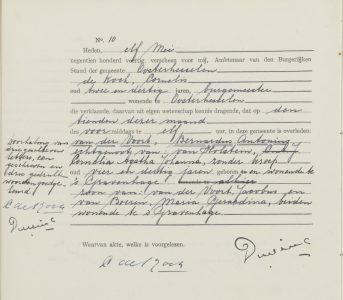 No. 10
Heden, elf Mei
negentien honderd veertig, verscheen voor mij, Ambtenaar van den Burgerlijken
Stand der gemeente Oosterhesselen
de Kock, Cornelis
oud twee en dertig jaren, burgemeester
wonende te Oosterhesselen
die verklaarde, daarvan uit eigen wetenschap kennis dragende, dat op den
tienden dezer maand
des voor middags te elf uur, in deze gemeente is overleden:
van der Voort, Bernardus Antonius
echtgenoot van van Holstein,
Cornelia Agatha Johanna, zonder beroep
oud vier en dertig jaren, geboren en wonende te
's Gravenhage
zoon van: van der Voort, Jacobus en
van Boeren, Maria Gerardina, beiden
wonende te 's Gravenhage
Doorhaling van
drie gedrukte
letters, een
geschreven en
drie gedrukte
woorden goedge-
keurd
C de Kock
Waarvan akte, welke is voorgelezen.
C de Kock